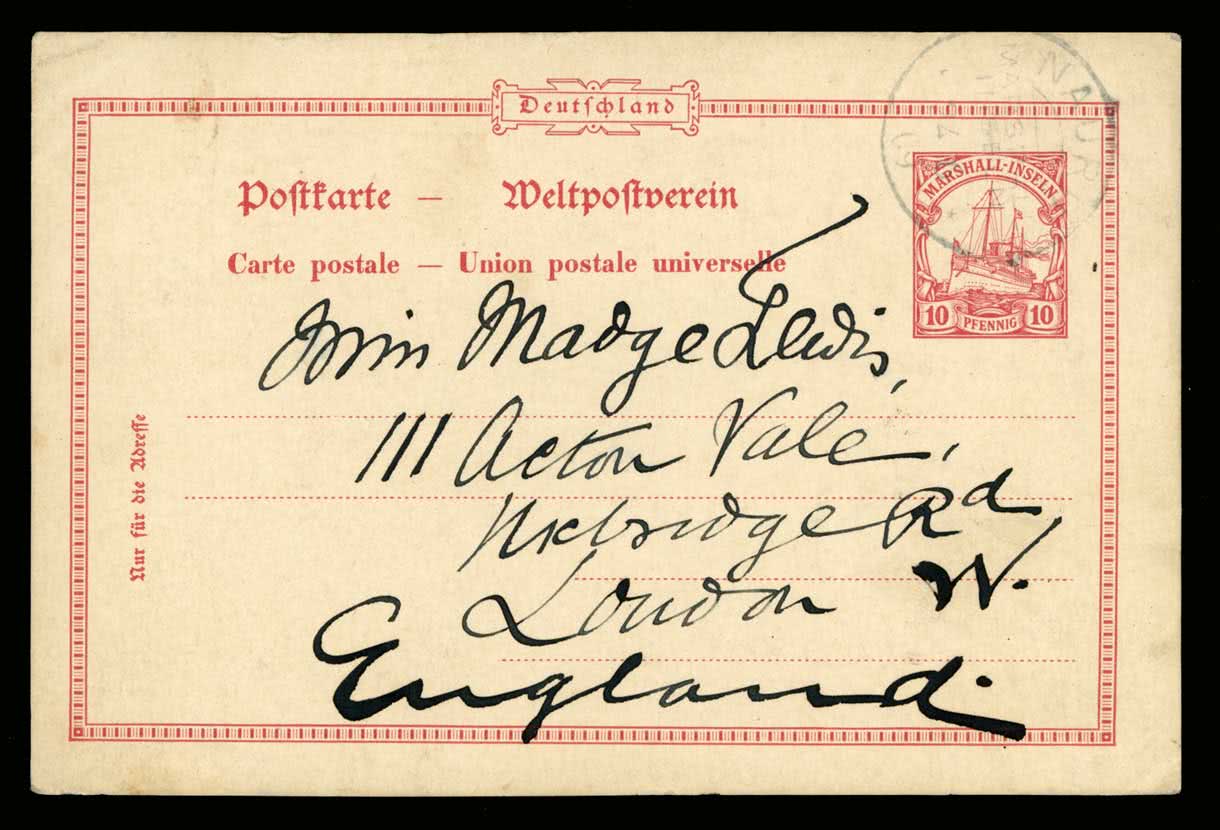 Deutschland
Postkarte — Weltpostverein
Carte postale — Union postale universelle
NAURU
MARSHALL-INSELN
10 PFENNIG 10
Miss Madge Lewis,
111 Acton Vale,
Uxbridge Rd
London W.
England.
Nur für die Adresse